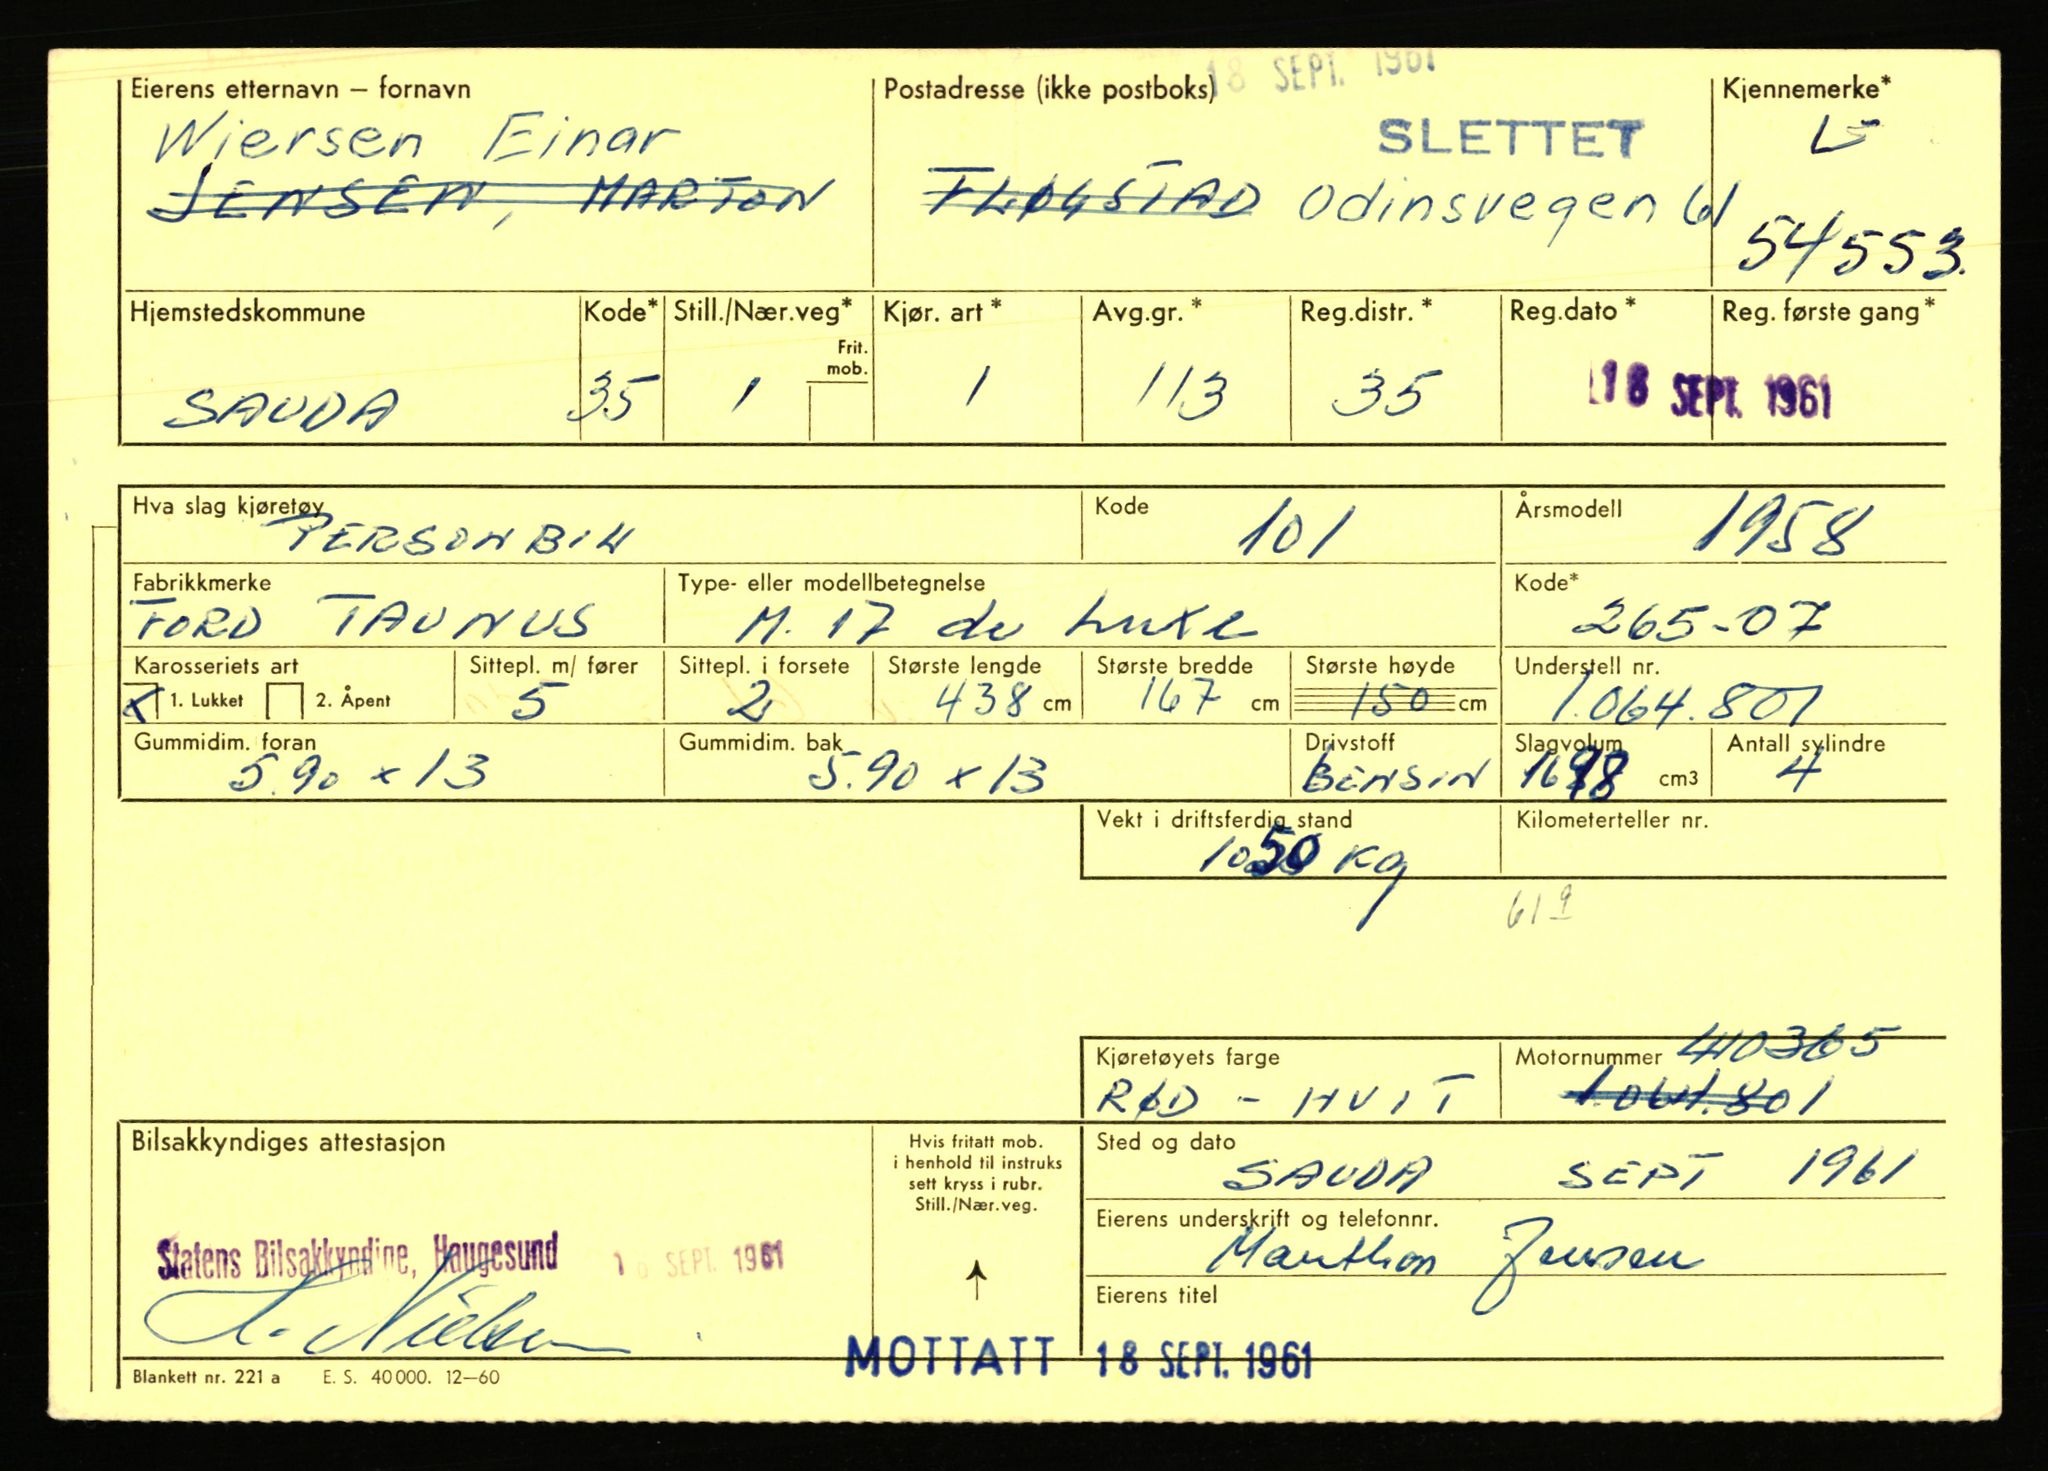 18 SEPT. 1961
Eierens etternavn – fornavn
Postadresse (ikke postboks)
Kjennemerke*
Wiersen Einar
SLETTET
L
JENSEN, MARTON
FLØGSTAD Odinsvegen 61
54553.
Hjemstedskommune
Kode*
Still./Nær.veg*
Frit. mob.
Kjør. art *
Avg.gr. *
Reg.distr. *
Reg.dato *
Reg. første gang *
SAUDA
35
1
1
113
35
18 SEPT. 1961
Hva slag kjøretøy
Kode
Årsmodell
PERSONBIL
101
1958
Fabrikkmerke
Type- eller modellbetegnelse
Kode*
FORD TAUNUS
M. 17 de Luxe
265-07
Karosseriets art
Sittepl. m/ fører
Sittepl. i forsete
Største lengde
Største bredde
Største høyde
Understell nr.
X 1. Lukket 2. Åpent
5
2
438 cm
167 cm
150 cm
1.064.801
Gummidim. foran
Gummidim. bak
Drivstoff
Slagvolum
Antall sylindre
5.90 x 13
5.90 x 13
BENSIN
1698 cm3
4
Vekt i driftsferdig stand
Kilometerteller nr.
1050 kg
61 9
Kjøretøyets farge
Motornummer 410365
RØD - HVIT
1.064.801
Bilsakkyndiges attestasjon
Hvis fritatt mob.
i henhold til instruks
sett kryss i rubr.
Still./Nær.veg.
Sted og dato
SAUDA SEPT 1961
Eierens underskrift og telefonnr.
Statens Bilsakkyndige, Haugesund 18 SEPT. 1961
Marthon Jensen
Eierens titel
Nielsen
MOTTATT 18 SEPT. 1961
Blankett nr. 221 a E. S. 40 000. 12–60